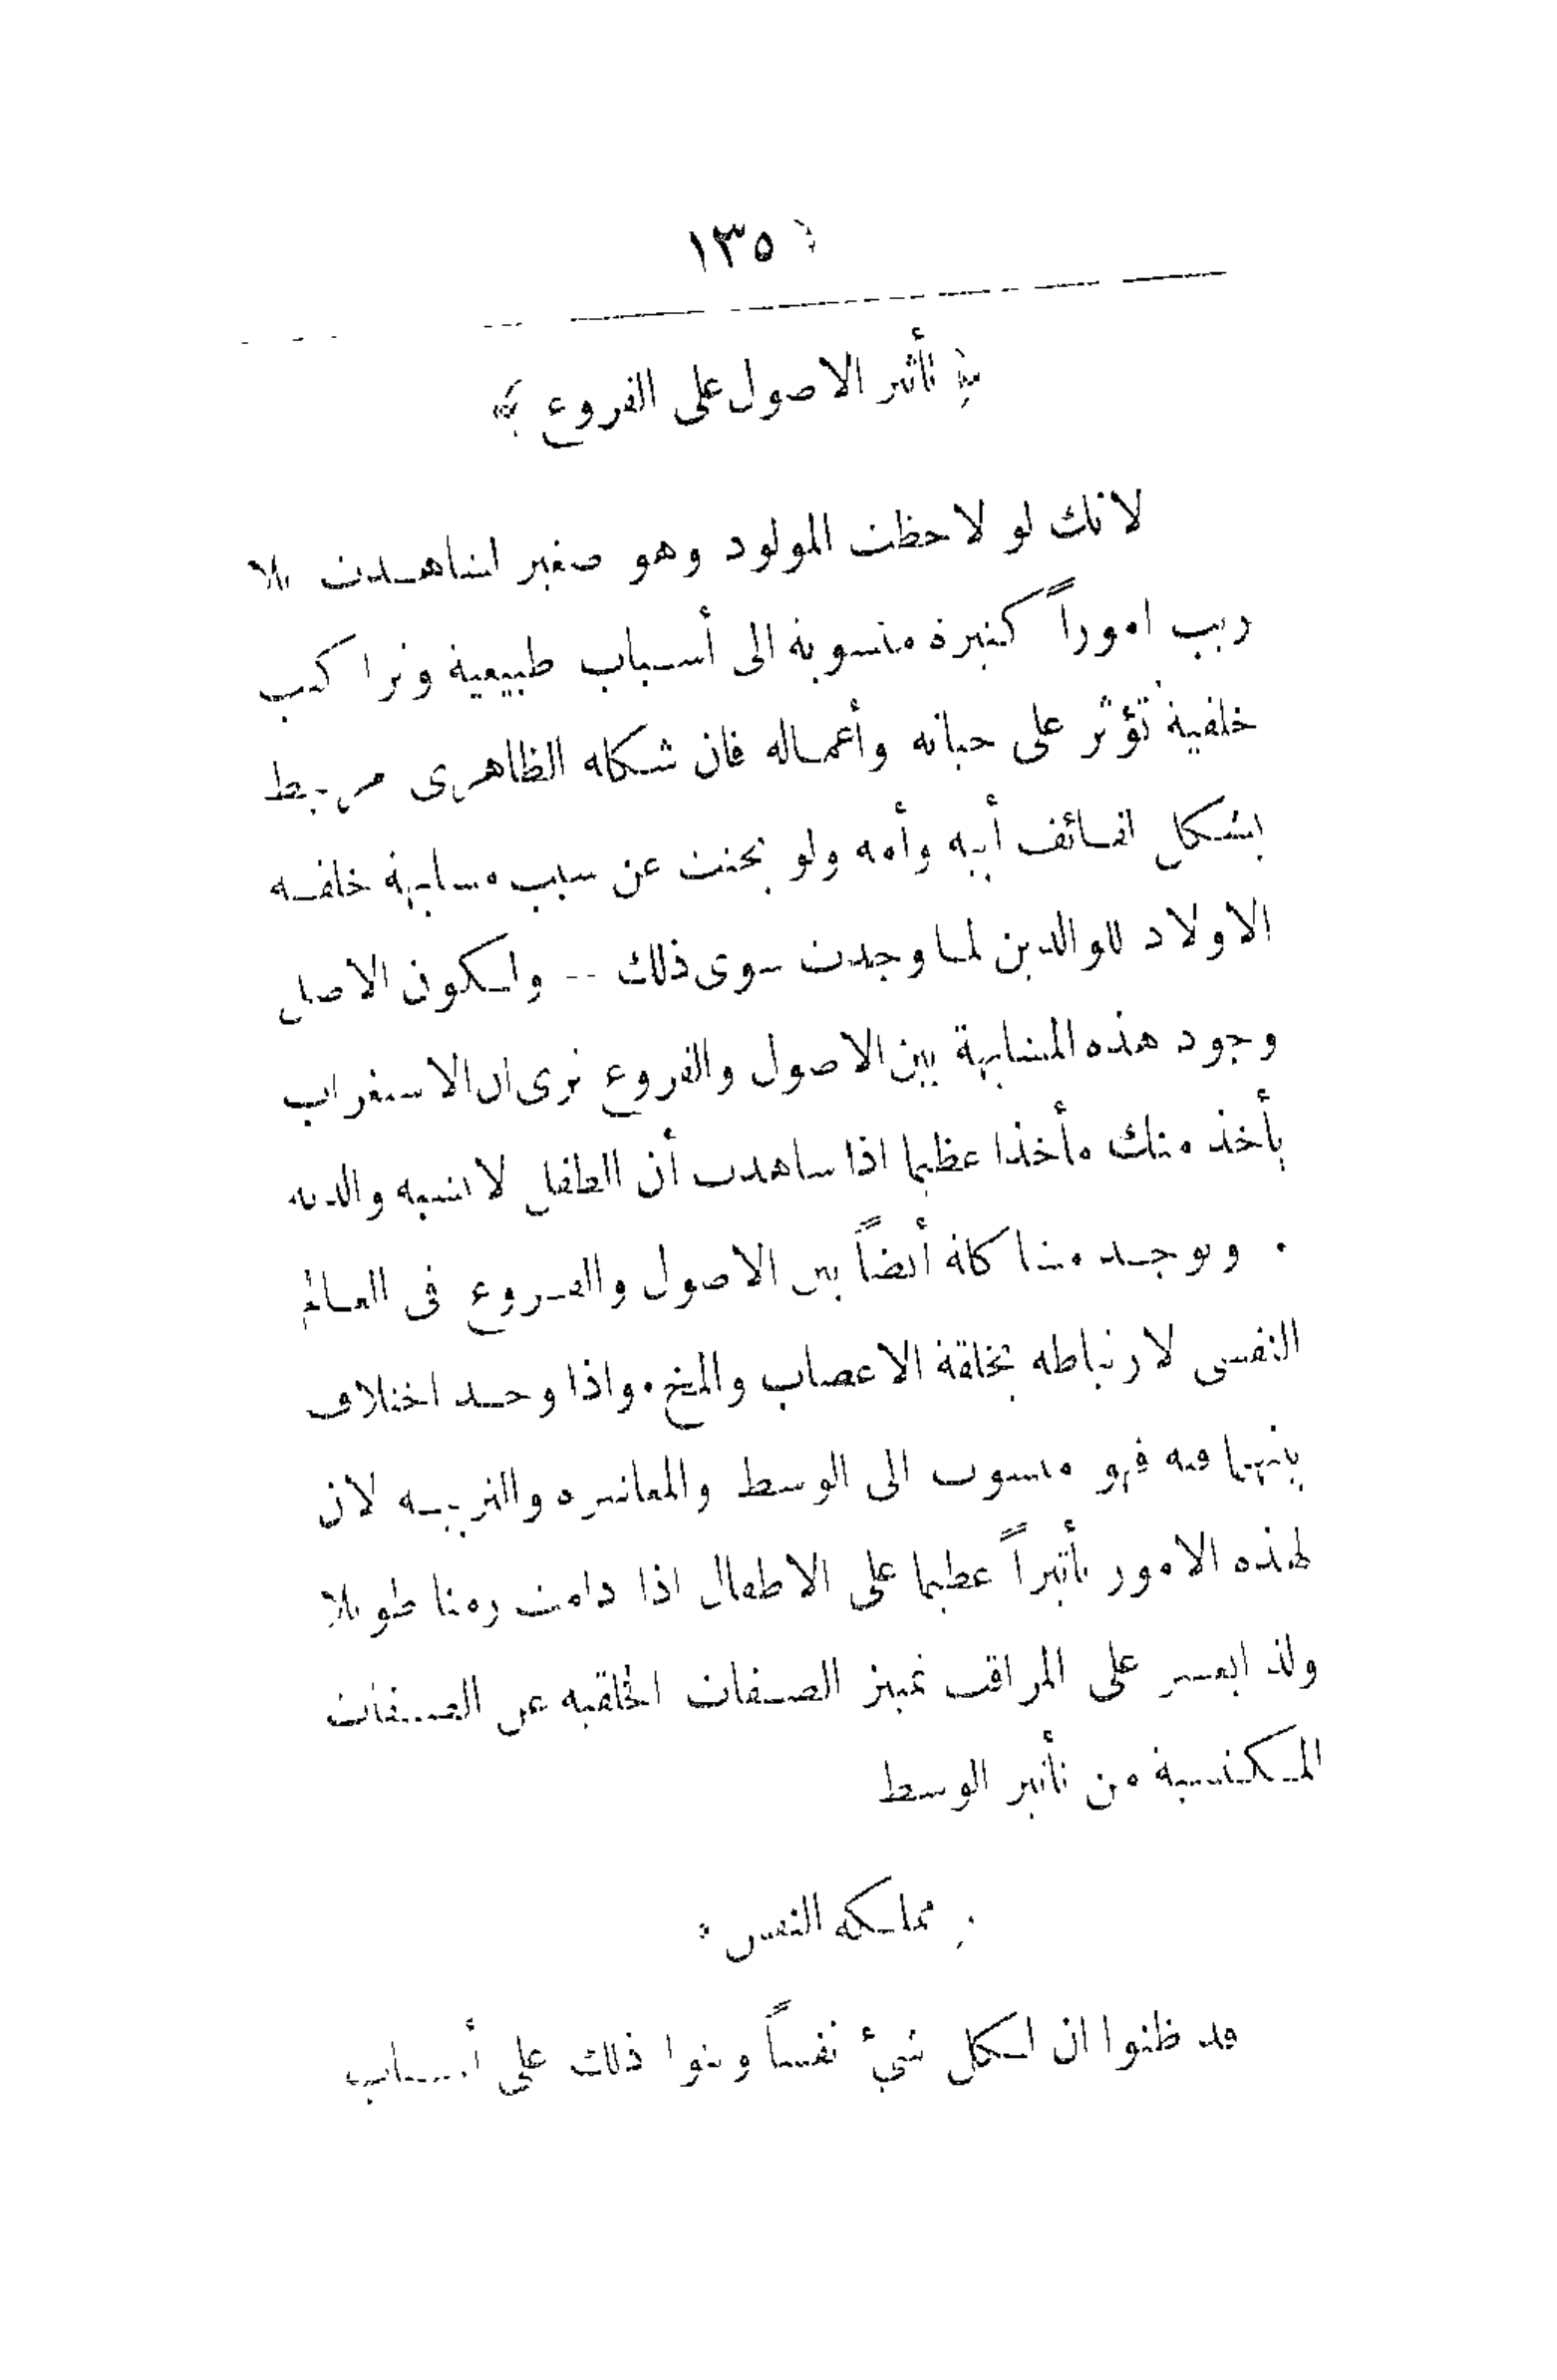 ١٣٥
﴿ تأثير الاصول على الفروع ﴾
لانك لو لاحظت المولود وهو صغير لشاهدت بلا
ريب اموراً كثيرة منسوبة الى أسباب طبيعية وتراكيب
خلقية تؤثر على حياته وأعماله فان شكله الظاهرى مرتبط
بشكل لفائف أبيه وأمه ولو بحثت عن سبب مشابهة خلقة
الاولاد للوالدين لما وجدت سوى ذلك -- ولكون الاصل
وجود هذه المشابهة بين الاصول والفروع نرى ان الاستغراب
يأخذ منك مأخذا عظيما اذا شاهدت أن الطفل لا يشبه والديه
. ويوجد مشاكلة أيضاً بين الاصول والفروع فى العالم
النفسى لارتباطه بخلقة الاعصاب والمخ . واذا وجد اختلاف
بينهما فيه فهو منسوب الى الوسط والمعاشره والتربيه لان
لهذه الامور تأثيراً عظيما على الاطفال اذا دامت زمنا طويلا
ولذا يعسر على المراقب تمييز الصفات الخلقيه عن الصفات
المكتسبة من تأثير الوسط
﴿ مملكة النفس ﴾
قد ظنوا ان لكل شئ نفساً وبنوا ذلك على أسباب